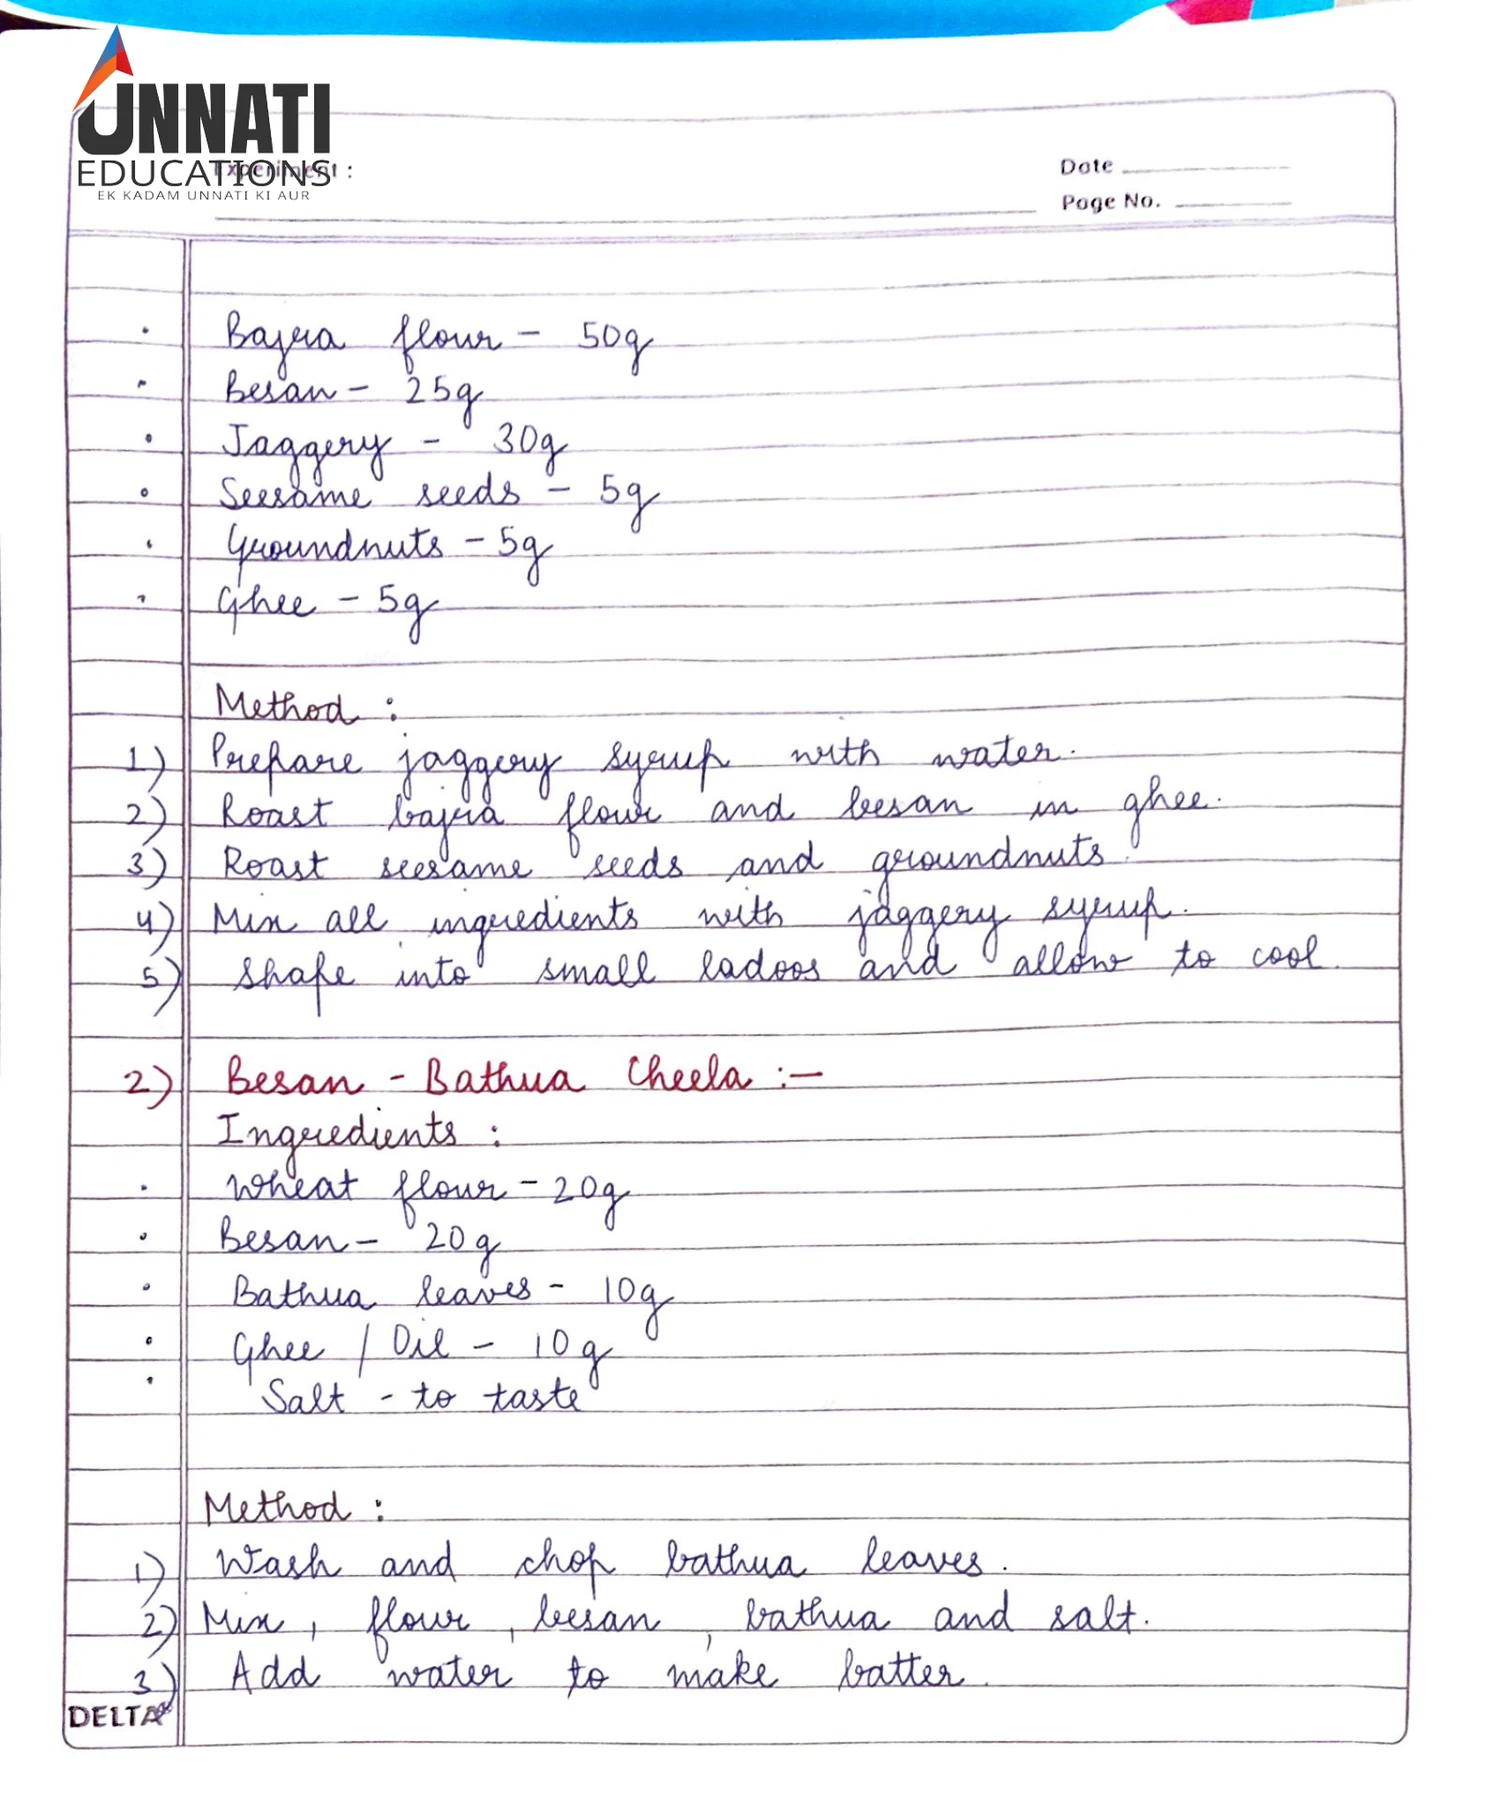 UNNATI
EDUCATIONS
EK KADAM UNNATI KI AUR
Experiment :
Date
Page No.
Bajra flour - 50g
Besan - 25g
Jaggery - 30g
Seesame seeds - 5g
Groundnuts - 5g
Ghee - 5g
Method :
1) Prepare jaggery syrup with water.
2) Roast bajra flour and besan in ghee.
3) Roast seesame seeds and groundnuts.
4) Mix all ingredients with jaggery syrup.
5) Shape into small ladoos and allow to cool.
2) Besan - Bathua Cheela :-
Ingredients :
Wheat flour - 20g
Besan - 20g
Bathua leaves - 10g
Ghee / Oil - 10g
Salt - to taste
Method :
1) Wash and chop bathua leaves.
2) Mix, flour, besan, bathua and salt.
3) Add water to make batter.
DELTA